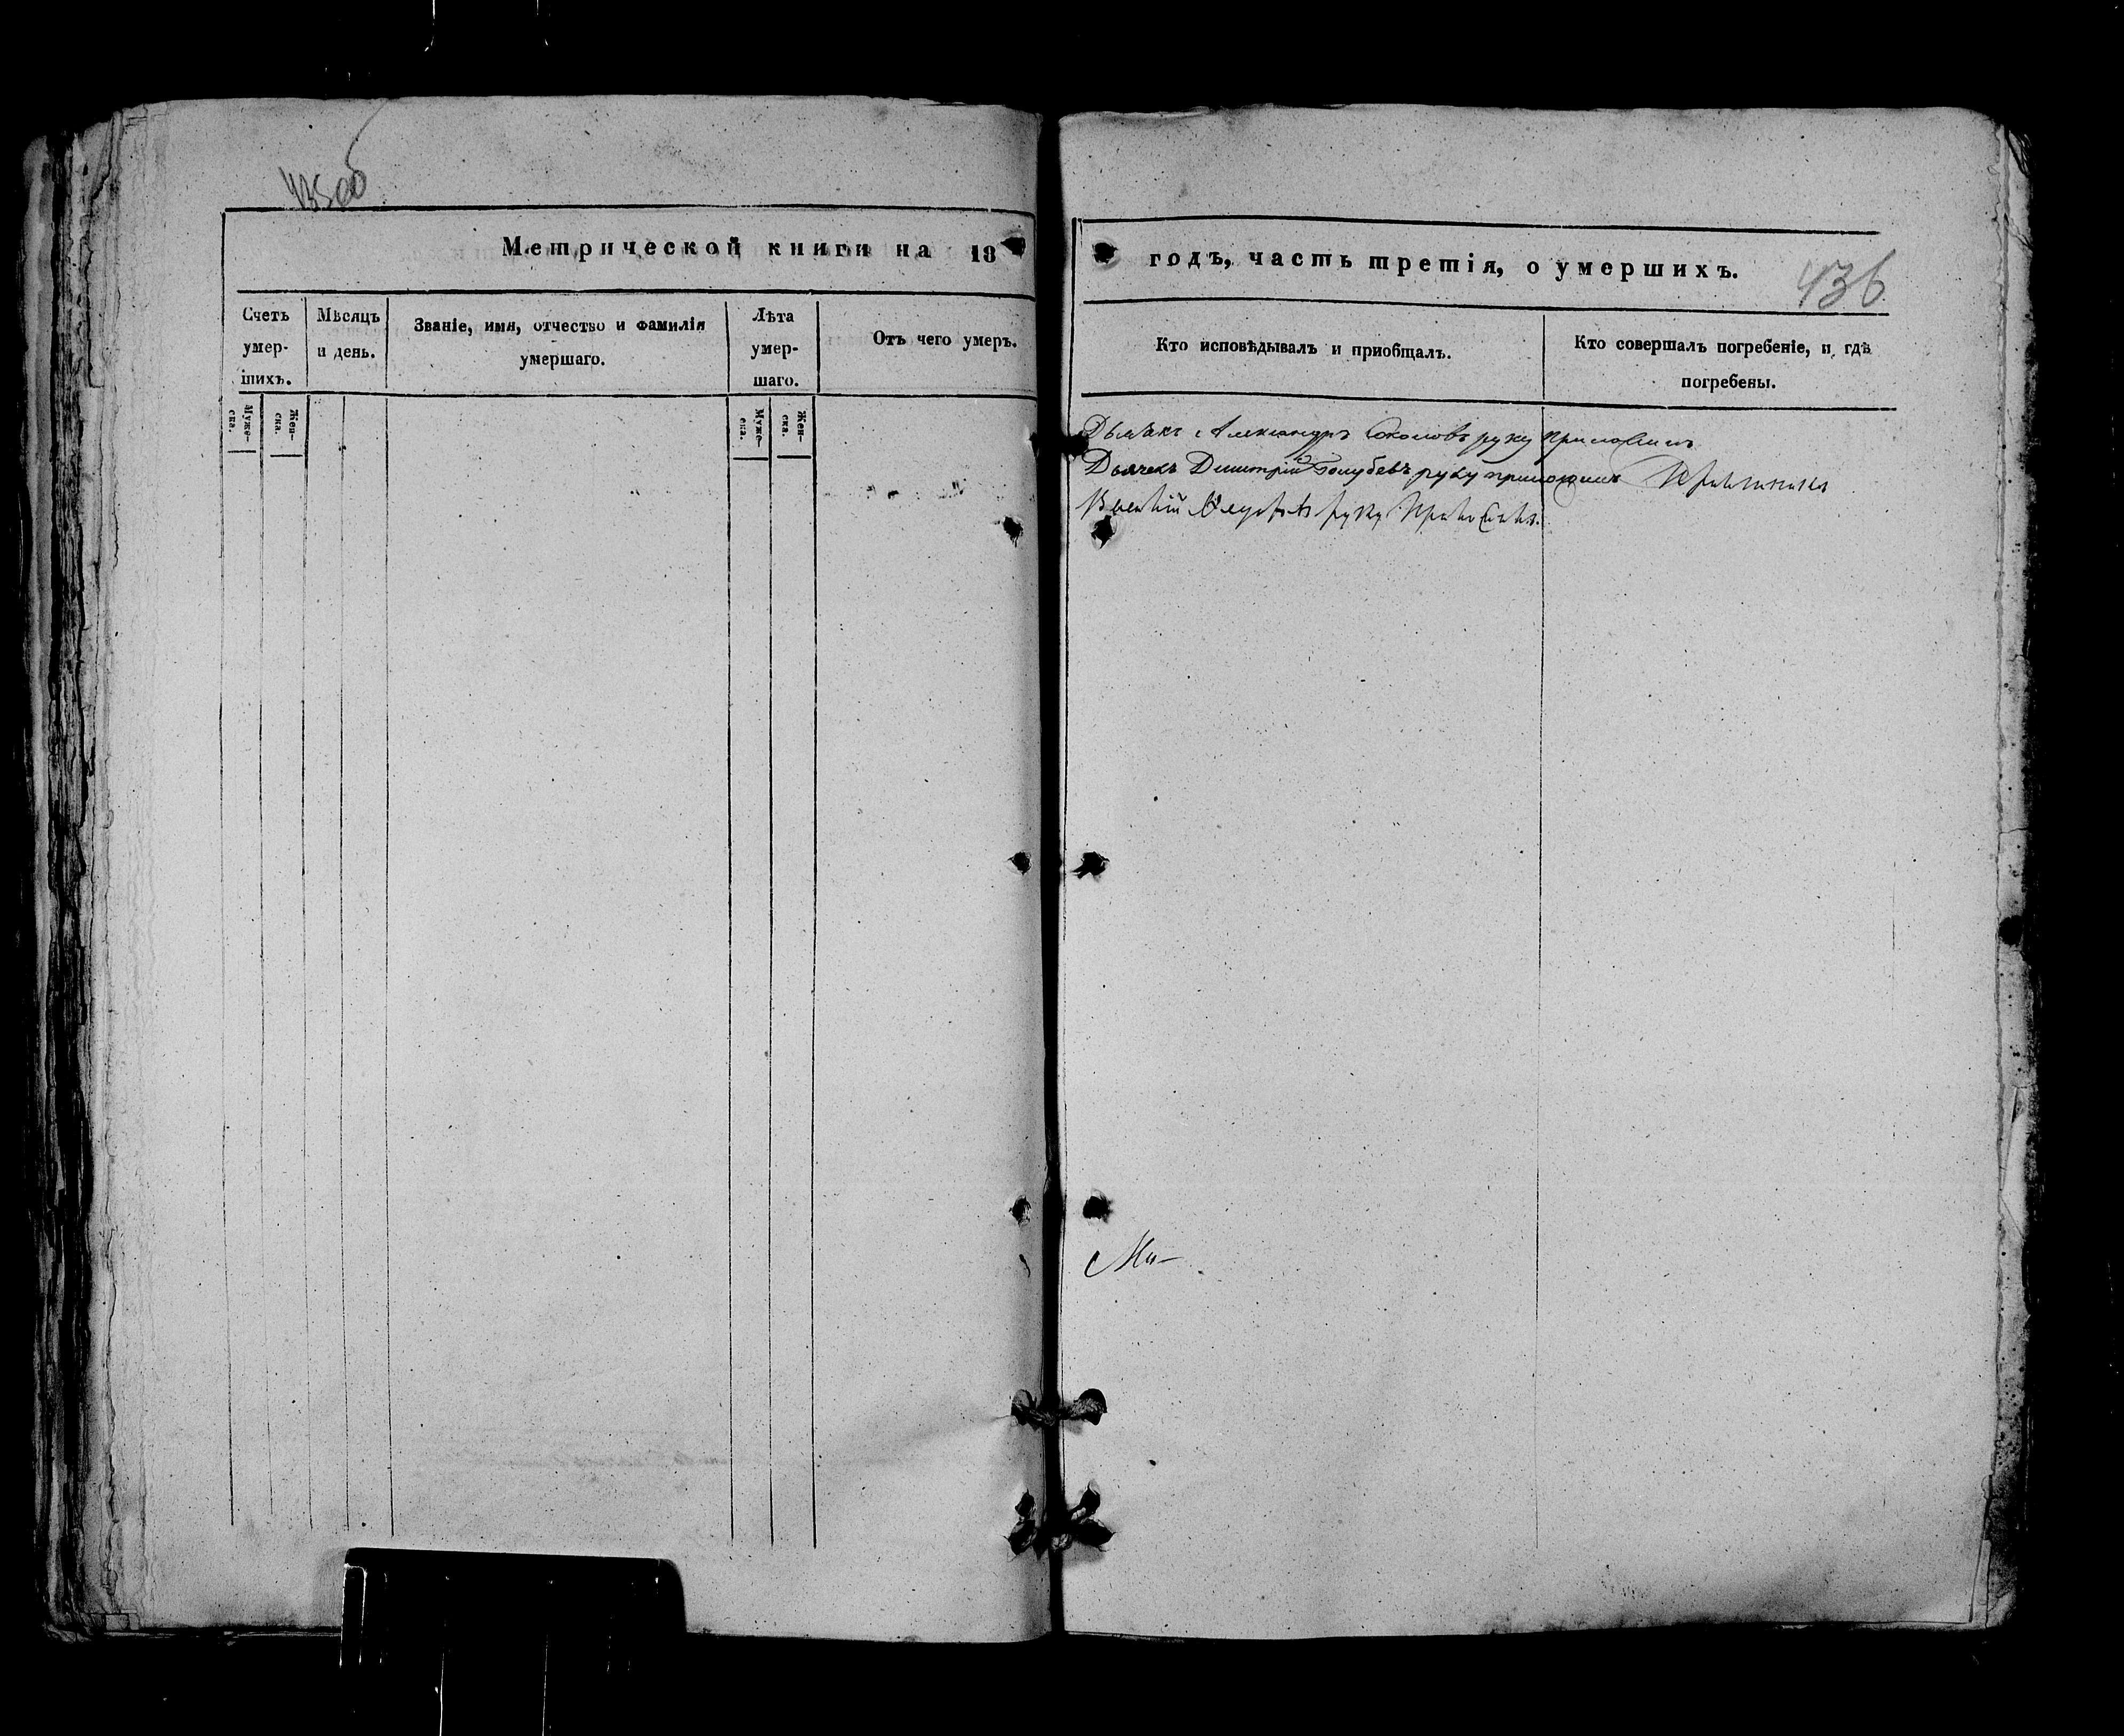 435об
Метрической книги на 18
годъ, часть третія, о умершихъ.
436
Счетъ умер-шихъ.
Мѣсяцъ и день.
Званіе, имя, отчество и фамилія умершаго.
Лѣта умер-шаго.
Отъ чего умеръ.
Кто исповѣдывалъ и приобщалъ.
Кто совершалъ погребеніе, и гдѣ погребены.
Муже-ска.
Жен-ска.
Муже-ска.
Жен-ска.
Дьячекъ Александръ Соколовъ руку приложилъ
Дьячекъ Димитрій Голубевъ руку приложилъ
руку приложилъ.